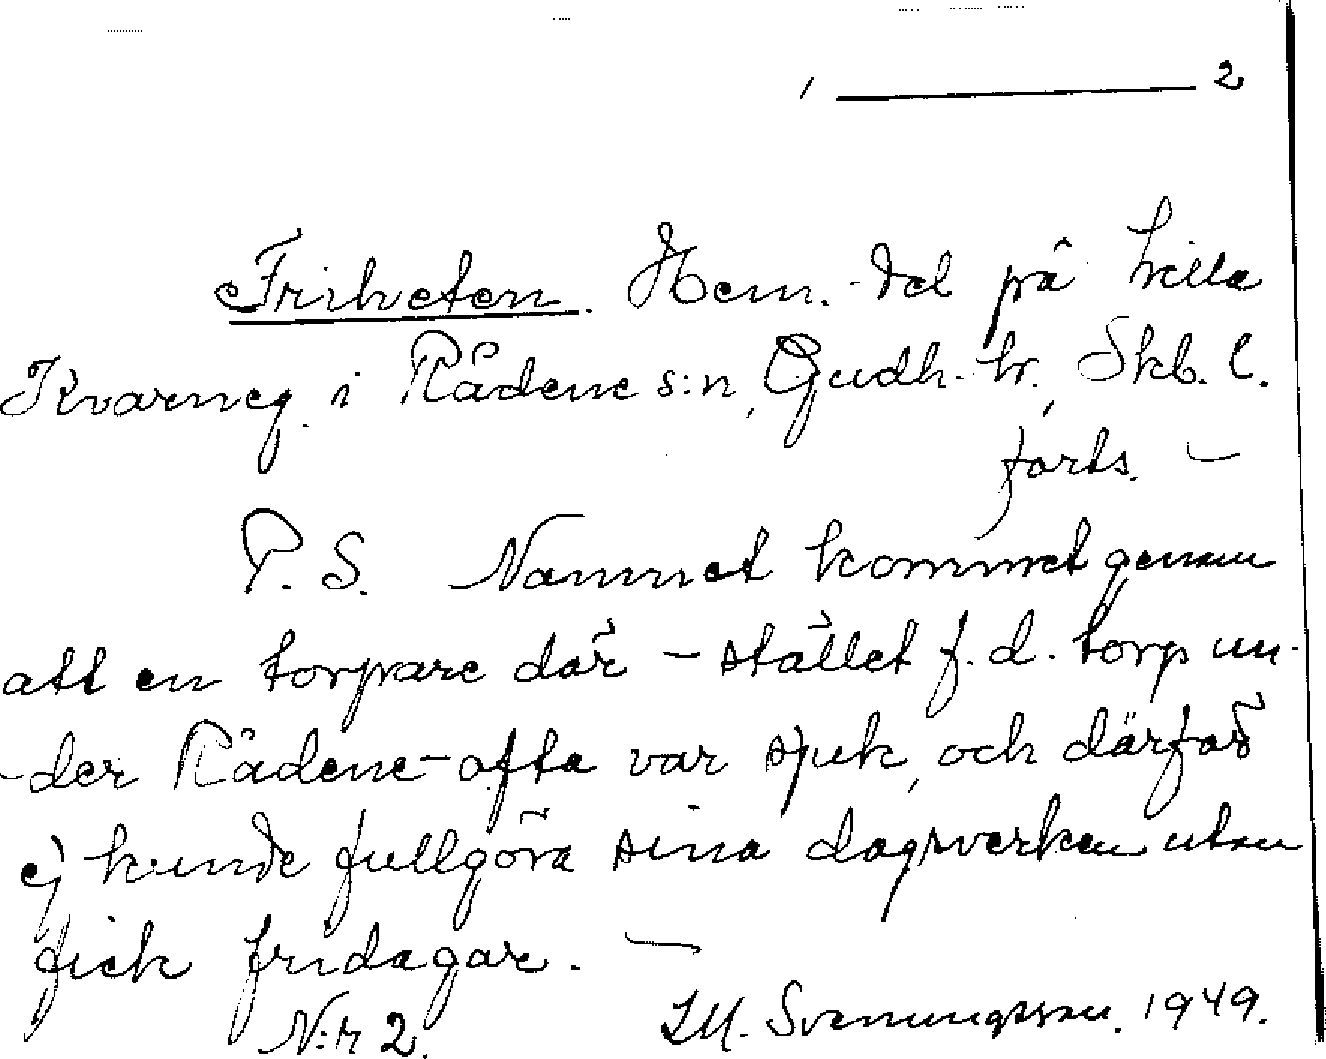 2
Friheten. Hem.-del på Lilla
Kvarneg. i Rådene s:n, Gudh. hr., Skb. l.
forts. —
P. S. Namnet kommet genom
att en torpare där – stället f. d. torp un-
-der Rådene – ofta var sjuk, och därför
ej kunde fullgöra sina dagsverken utan
fick fridagar. —
N:r 2. Svenungsson. 1949.